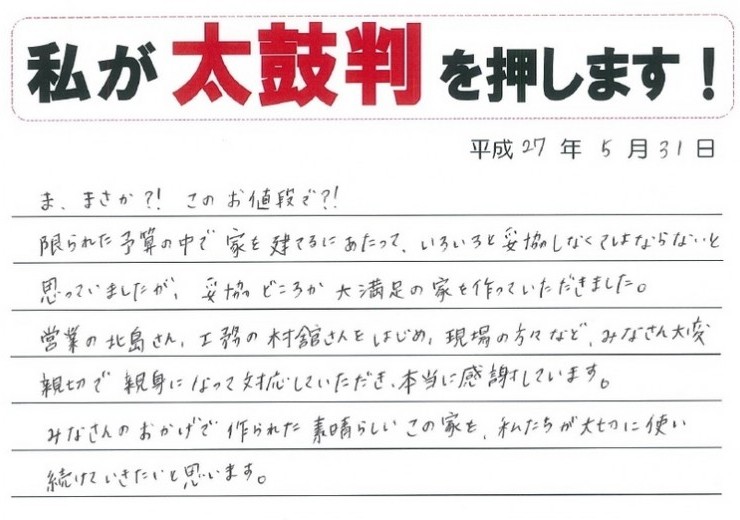 私が太鼓判を押します！
平成27年5月31日
ま、まさか?! このお値段で?!
限られた予算の中で家を建てるにあたって、いろいろと妥協しなくてはならないと
思っていましたが、妥協どころか大満足の家を作っていただきました。
営業の北島さん、工務の村舘さんをはじめ、現場の方々など、みなさん大変
親切で親身になって対応していただき、本当に感謝しています。
みなさんのおかげで作られた素晴らしいこの家を、私たちが大切に使い
続けていきたいと思います。